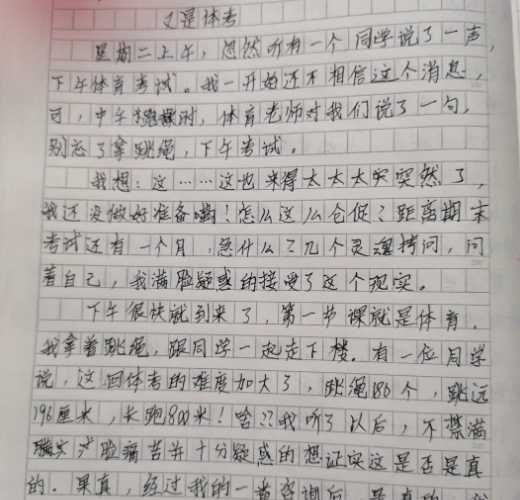 又是体考
星期二上午，忽然听有一个同学说了一声，
下午体育考试。我一开始还不相信这个消息，
可，中午跑操时，体育老师对我们说了一句，
别忘了拿跳绳，下午考试。
我想：这……这也来得太太太突突然了，
我还没做好准备嘞！怎么这么仓促？距离期末
考试还有一个月，急什么？几个灵魂拷问，问
着自己，我满脸疑惑的接受了这个现实。
下午很快就到来了，第一节课就是体育，
我拿着跳绳，跟同学一起走下楼。有一位同学
说，这回体考的难度加大了，跳绳186个，跳远
196厘米，长跑800米！啥??我听了以后，不禁满
脸痛苦并十分疑惑的想证实这是否是真
的。果真，经过我的一番咨询后，是真的